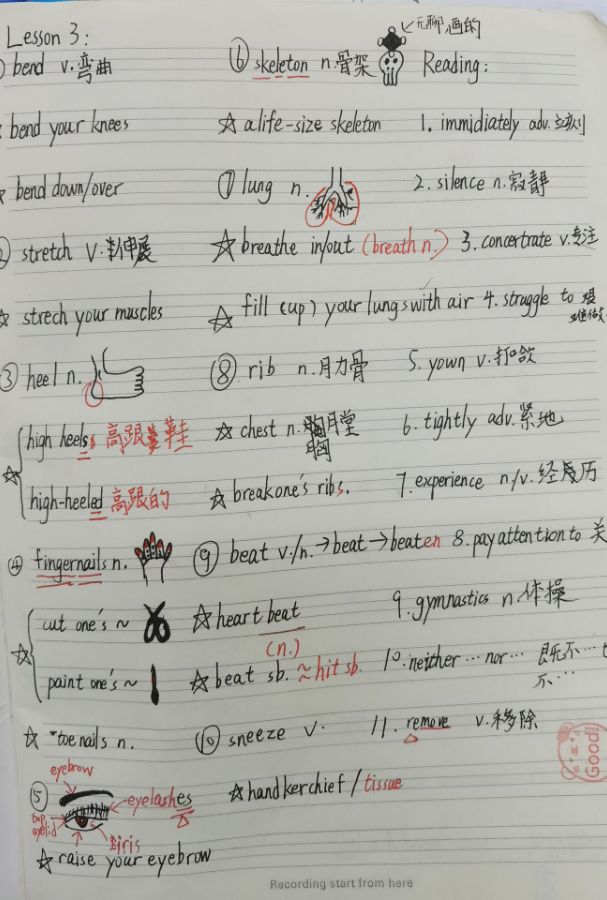 Lesson 3:
bend v.弯曲
bend your knees
bend down/over
stretch v.伸展
strech your muscles
③ heel n.
high heels 高跟鞋
high-heeled 高跟的
④ fingernails n.
cut one's ~
paint one's ~
toe nails n.
⑤
eyebrow
eyelashes
top eyelid
iris
☆ raise your eyebrow
无聊画的
⑥ skeleton n.骨架
☆ a life-size skeleton
⑦ lung n.
☆ breathe in/out (breath n.)
☆ fill (up) your lungs with air
⑧ rib n.肋骨
☆ chest n.胸膛
胸
☆ break one's ribs.
⑨ beat v./n.→beat→beaten
☆ heart beat
(n.)
☆ beat sb. ~hit sb.
⑩ sneeze v.
☆ handkerchief / tissue
Reading:
1. immidiately adv.立刻
2. silence n.寂静
3. concertrate v.专注
4. struggle to 艰难做
5. yown v.打哈欠
6. tightly adv.紧地
7. experience n/v.经历
8. pay attention to 关
9. gymnastics n.体操
10. neither…nor… 既不…
不…
11. remove v.移除
Good!
Recording start from here